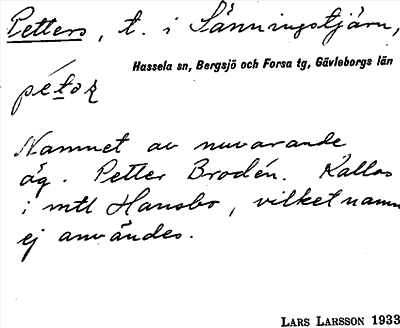 Petters, t. i Sänningstjärn,
Hassela sn, Bergsjö och Forsa tg, Gävleborgs län
petoʐ
Namnet av nuvarande
äg. Petter Brodén. Kallas
i mtl Hansbo, vilket namn
ej användes.
LARS LARSSON 1933